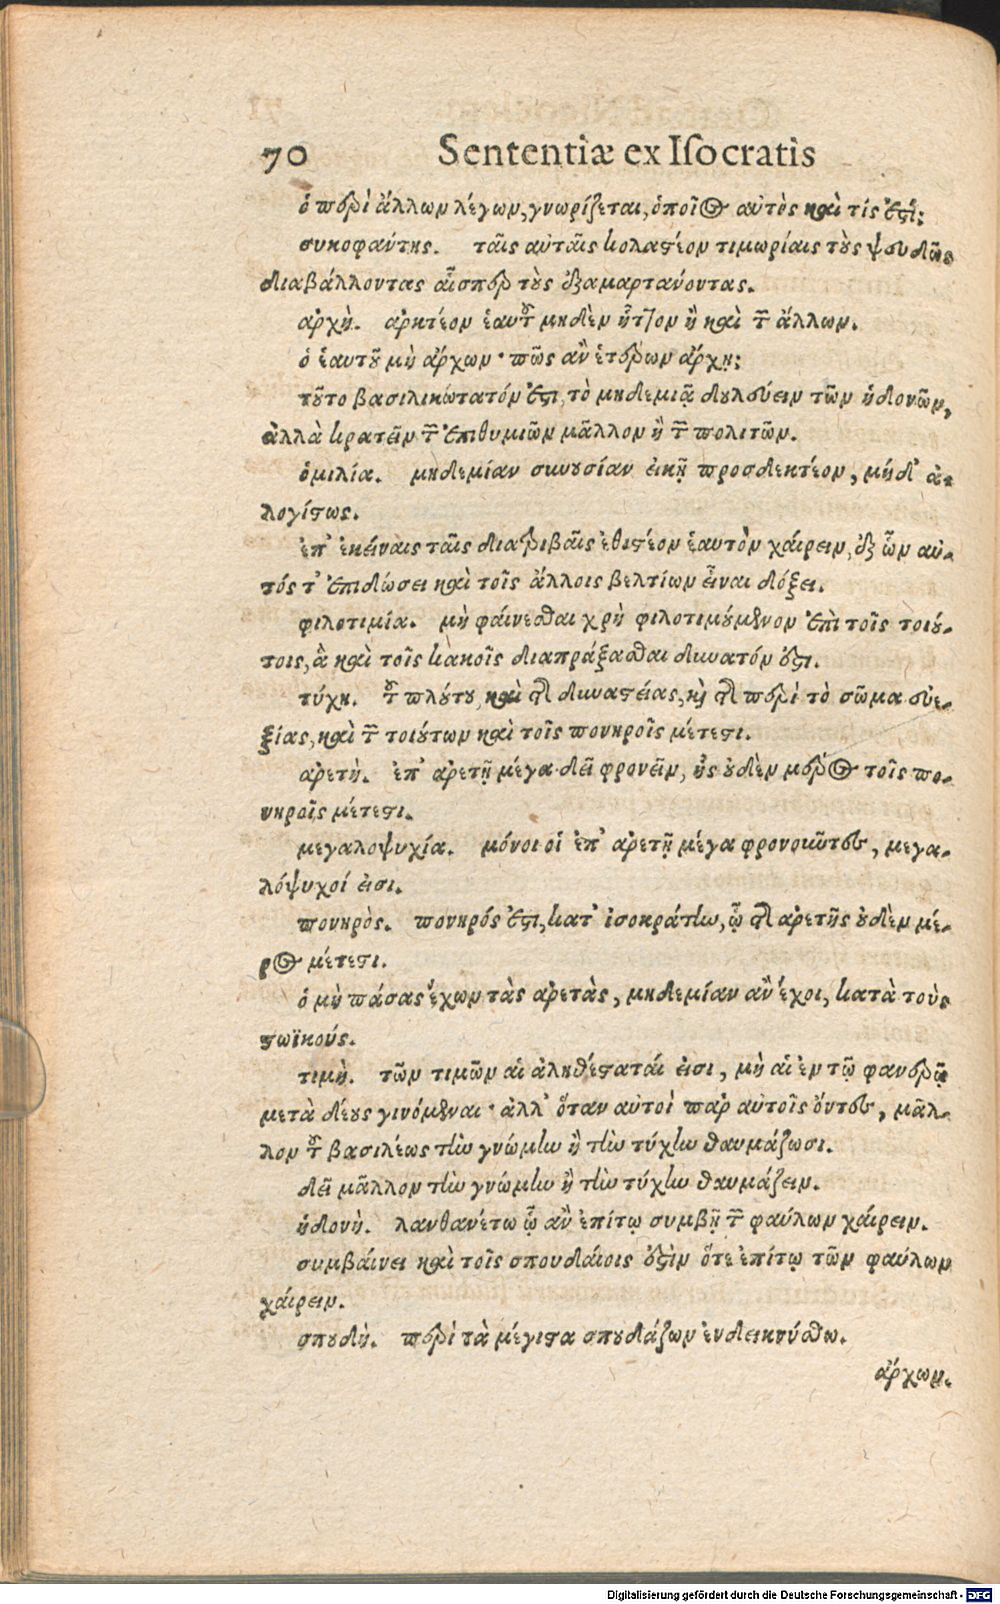 70 Sententiæ ex Iſocratis
ὁ περὶ ἄλλων λέγων, γνωρίζεται, ὁποῖος αὐτὸς καὶ τίς ἐςί;
συκοφαύτης. ταῖς αὐταῖς κολαςέον τιμωρίαις τοὺς ψευδῶς
διαβάλλοντας αἷσπερ τοὺς ἐξαμαρτανόντας.
αρχὴ. ἀρκτέον ἑαυτοῦ μηδὲν ἧττον ἢ καὶ τῶν ἄλλων.
ὁ ἑαυτοῦ μὴ ἄρχων· πῶς ἂν ἑτέρων ἄρχῃ;
τοῦτο βασιλικώτατόν ἐςι, τὸ μηδεμιᾷ δουλεύειν τῶν ἡδονῶν,
ἀλλὰ κρατεῖν τῶν ἐπιθυμιῶν μᾶλλον ἢ τῶν πολιτῶν.
ὁμιλία. μηδεμίαν συνουσίαν εἰκῆ προσδεκτέον, μήδ' ἀ-
λογίςως.
ἐπ' ἐκείναις ταῖς διατριβαῖς ἐθιςέον ἑαυτὸν χαίρειν, ἐξ ὧν αὐ-
τός τ' ἐπιδώσει καὶ τοῖς ἄλλοις βελτίων εἶναι δόξει.
φιλοτιμία. μὴ φαίνεσθαι χρὴ φιλοτιμούμενον ἐπὶ τοῖς τοιού-
τοις, ἃ καὶ τοῖς κακοῖς διαπράξασθαι δυνατόν ἐςι.
τύχη. τοῦ πλούτου, καὶ τῆς δυναςείας, καὶ τῆς περὶ τὸ σῶμα εὐε-
ξίας, καὶ τῶν τοιούτων καὶ τοῖς πονηροῖς μέτεςι.
ἀρετή. ἐπ' ἀρετῇ μέγα δεῖ φρονεῖν, ἧς οὐδὲν μέρος τοῖς πο-
νηροῖς μέτεςι.
μεγαλοψυχία. μόνοι οἱ ἐπ' ἀρετῇ μέγα φρονοῦντες, μεγα-
λόψυχοί εἰσι.
πονηρὸς. πονηρός ἐςι, κατ' ἰσοκράτην, ᾧ τῆς ἀρετῆς οὐδὲν μέ-
ρος μέτεςι.
ὁ μὴ πάσας ἔχων τὰς ἀρετὰς, μηδεμίαν ἂν ἔχοι, κατὰ τοὺς
ςωϊκούς.
τιμὴ. τῶν τιμῶν αἱ ἀληθέςαταί εἰσι, μὴ αἱ ἐν τῷ φανερῷ
μετὰ δέους γινόμεναι· ἀλλ' ὅταν αὐτοὶ παρ αὐτοῖς ὄντες, μᾶλ-
λον τοῦ βασιλέως τὴν γνώμην ἢ τὴν τύχην θαυμάζωσι.
δεῖ μᾶλλον τὴν γνώμην ἢ τὴν τύχην θαυμάζειν.
ἡδονὴ. λανθανέτω ᾧ ἂν ἐπίτῳ συμβῇ τῶν φαύλων χαίρειν.
συμβαίνει καὶ τοῖς σπουδαίοις ἐςὶν ὅτε ἐπίτῳ τῶν φαύλων
χαίρειν.
σπουδὴ. περὶ τὰ μέγιςα σπουδάζων ἐνδεικνύσθω.
ἄρχων.
Digitalisierung gefördert durch die Deutsche Forschungsgemeinschaft - DFG